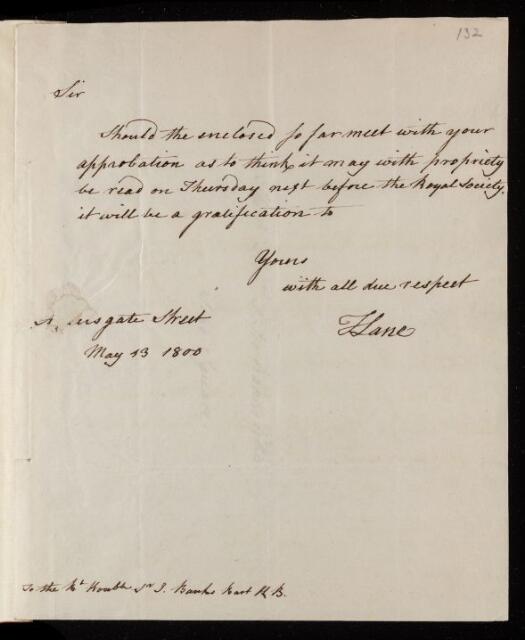 132
Sir
Should the enclosed so far meet with your
approbation as to think it may with propriety
be read on Thursday next before the Royal Society.
it will be a gratification to
Yours
with all due respect
TLane
gate Street
May 13 1800
To the Rt Honble Sr J. Banks Bart K B.